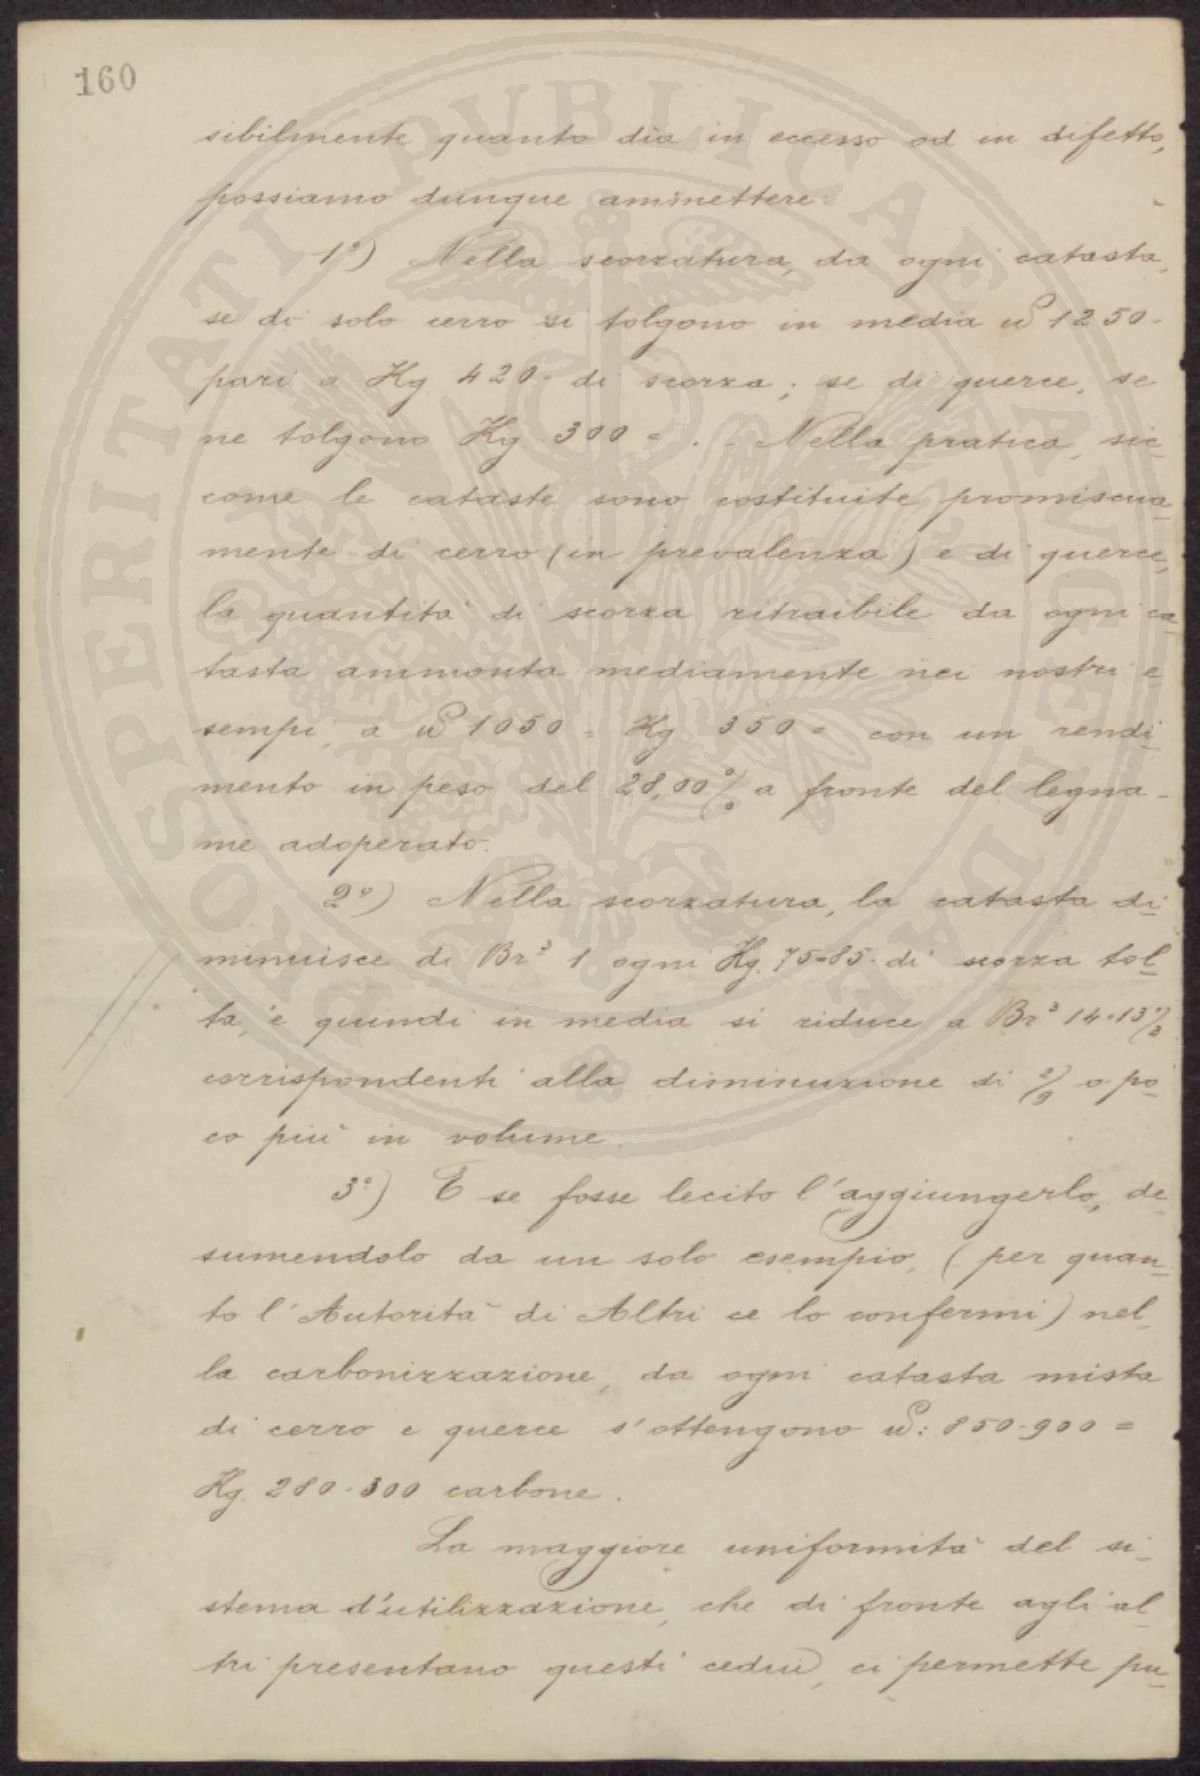 160
sibilmente quanto dia in eccesso od in difetto,
possiamo dunque ammettere:
1°) Nella scorzatura, da ogni catasta,
se di solo cerro si tolgono in media ℔ 1250-
pari a Kg. 420- di scorza; se di querce, se
ne tolgono Kg. 300 = . - Nella pratica, sic-
come le cataste sono costituite promiscua-
mente di cerro (in prevalenza) e di querce,
la quantità di scorza ritraibile da ogni ca-
tasta ammonta mediamente nei nostri e-
sempi, a ℔ 1050 = Kg 350 = con un rendi-
mento in peso del 28,00 % a fronte del legna-
me adoperato.
2°) Nella scorzatura, la catasta di-
minuisce di Br³ 1 ogni Kg. 75=85- di scorza tol-
ta, e quindi in media si riduce a Br³
corrispondenti alla diminuzione di 2/9 o po-
co più in volume.
3°) E se fosse lecito l'aggiungerlo, de-
sumendolo da un solo esempio, (per quan-
to l'Autorità di Altri ce lo confermi) nel-
la carbonizzazione, da ogni catasta mista
di cerro e querce s'ottengono ℔: 850-900 =
Kg. 280-300 carbone.
La maggiore uniformità del si-
stema d'utilizzazione, che di fronte agli al-
tri presentano questi cedui, ci permette pu-
PVBLICAE AVGENDAE PROSPERITATI